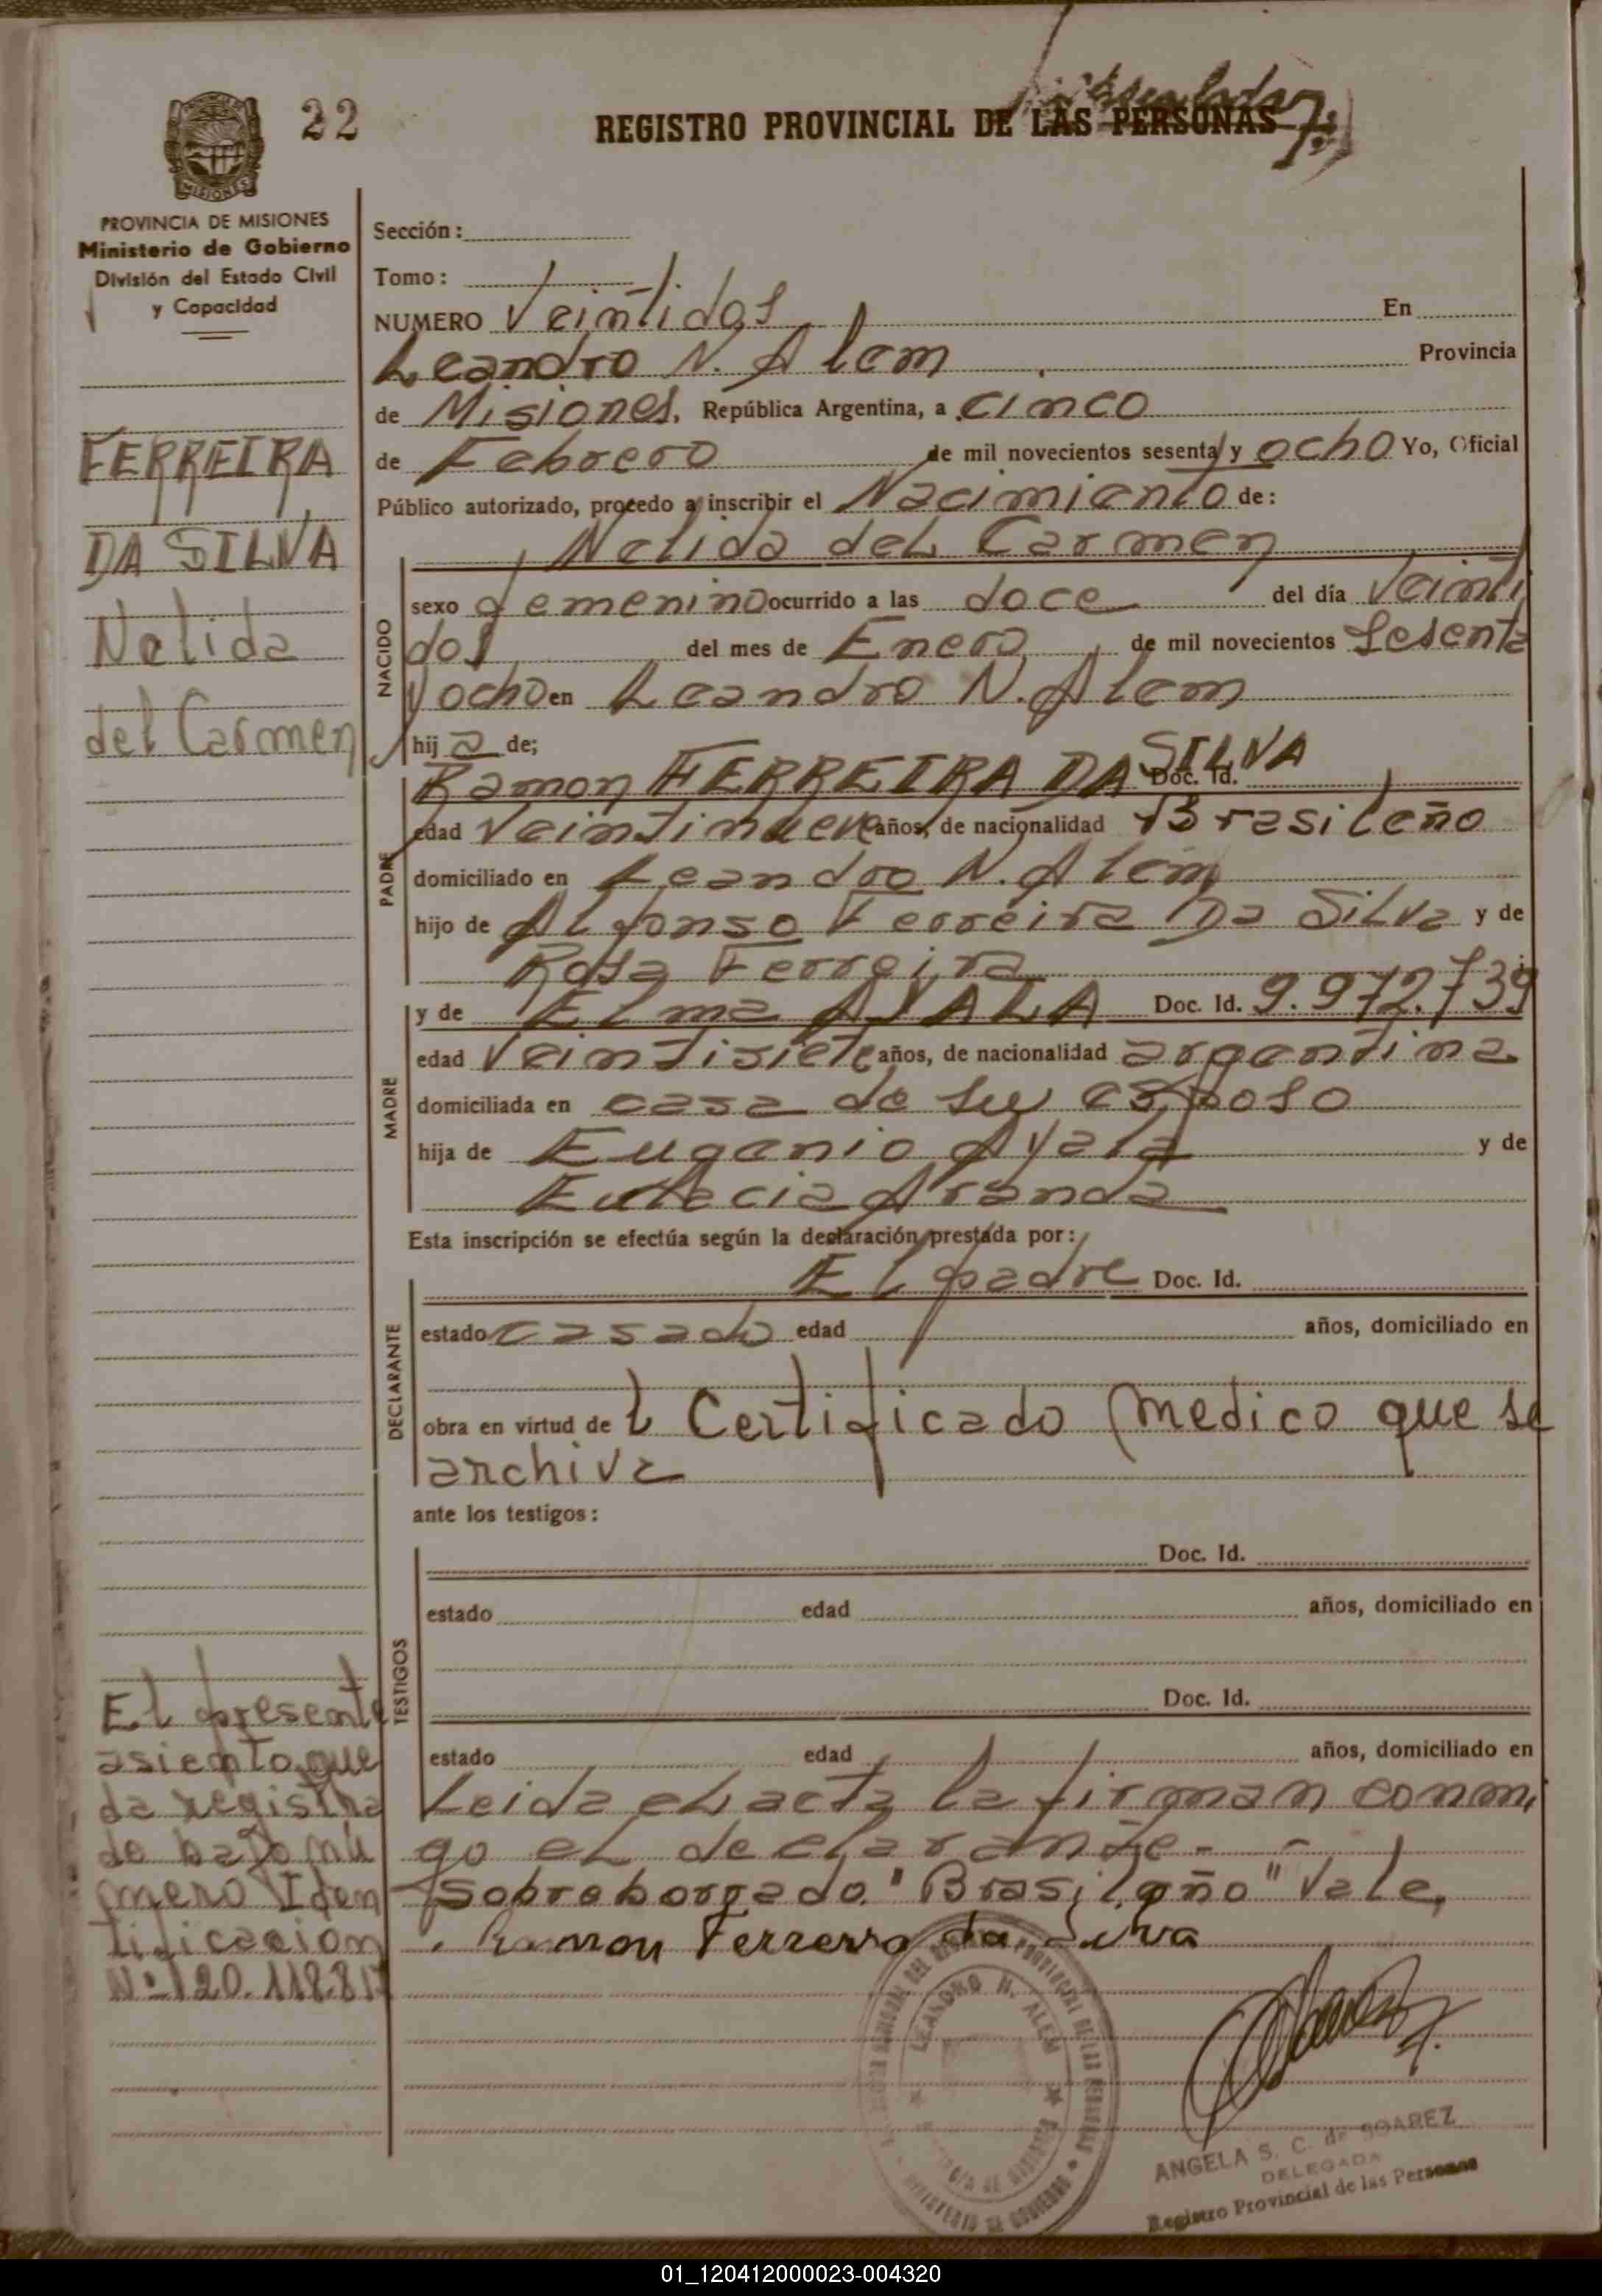 22
REGISTRO PROVINCIAL DE LAS PERSONAS
MISIONES
PROVINCIA DE MISIONES
Ministerio de Gobierno
División del Estado Civil
y Capacidad
FERREIRA
DA SILVA
Nelida
del Carmen
Sección:
Tomo:
NUMERO Veintidos En
Leandro N. Alem Provincia
de Misiones, República Argentina, a cinco
de Febrero de mil novecientos sesenta y ocho Yo, Oficial
Público autorizado, procedo a inscribir el Nacimiento de:
Nelida del Carmen
NACIDO
sexo femenino ocurrido a las doce del día Veinti
dos del mes de Enero de mil novecientos Sesenta
y ocho en Leandro N. Alem
hija de;
PADRE
Ramon FERREIRA DA SILVA Doc. Id.
edad Veintinueve años, de nacionalidad Brasileño
domiciliado en Leandro N. Alem
hijo de Alfonso Ferreira Da Silva y de
Rosa Ferreira
MADRE
y de Elma AYALA Doc. Id. 9.972.739
edad Veintisiete años, de nacionalidad argentina
domiciliada en casa de su esposo
hija de Eugenio Ayala y de
Aranda
Esta inscripción se efectúa según la declaración prestada por:
DECLARANTE
El padre Doc. Id.
estado casado edad años, domiciliado en
obra en virtud del Certificado medico que se
archiva
ante los testigos:
TESTIGOS
Doc. Id.
estado edad años, domiciliado en
Doc. Id.
estado edad años, domiciliado en
Leida el acta la firman conmi
go el declarante.-
Sobreborrado "Brasileño" Vale,
Ramon Ferreira da Silva
El presente
asiento que
da registra
do bajo nú
mero Iden
tificacion
Nº 20.118.81
LEANDRO N. ALEM
ANGELA S. C. de SOAREZ
DELEGADA
Registro Provincial de las Personas
01_120412000023-004320